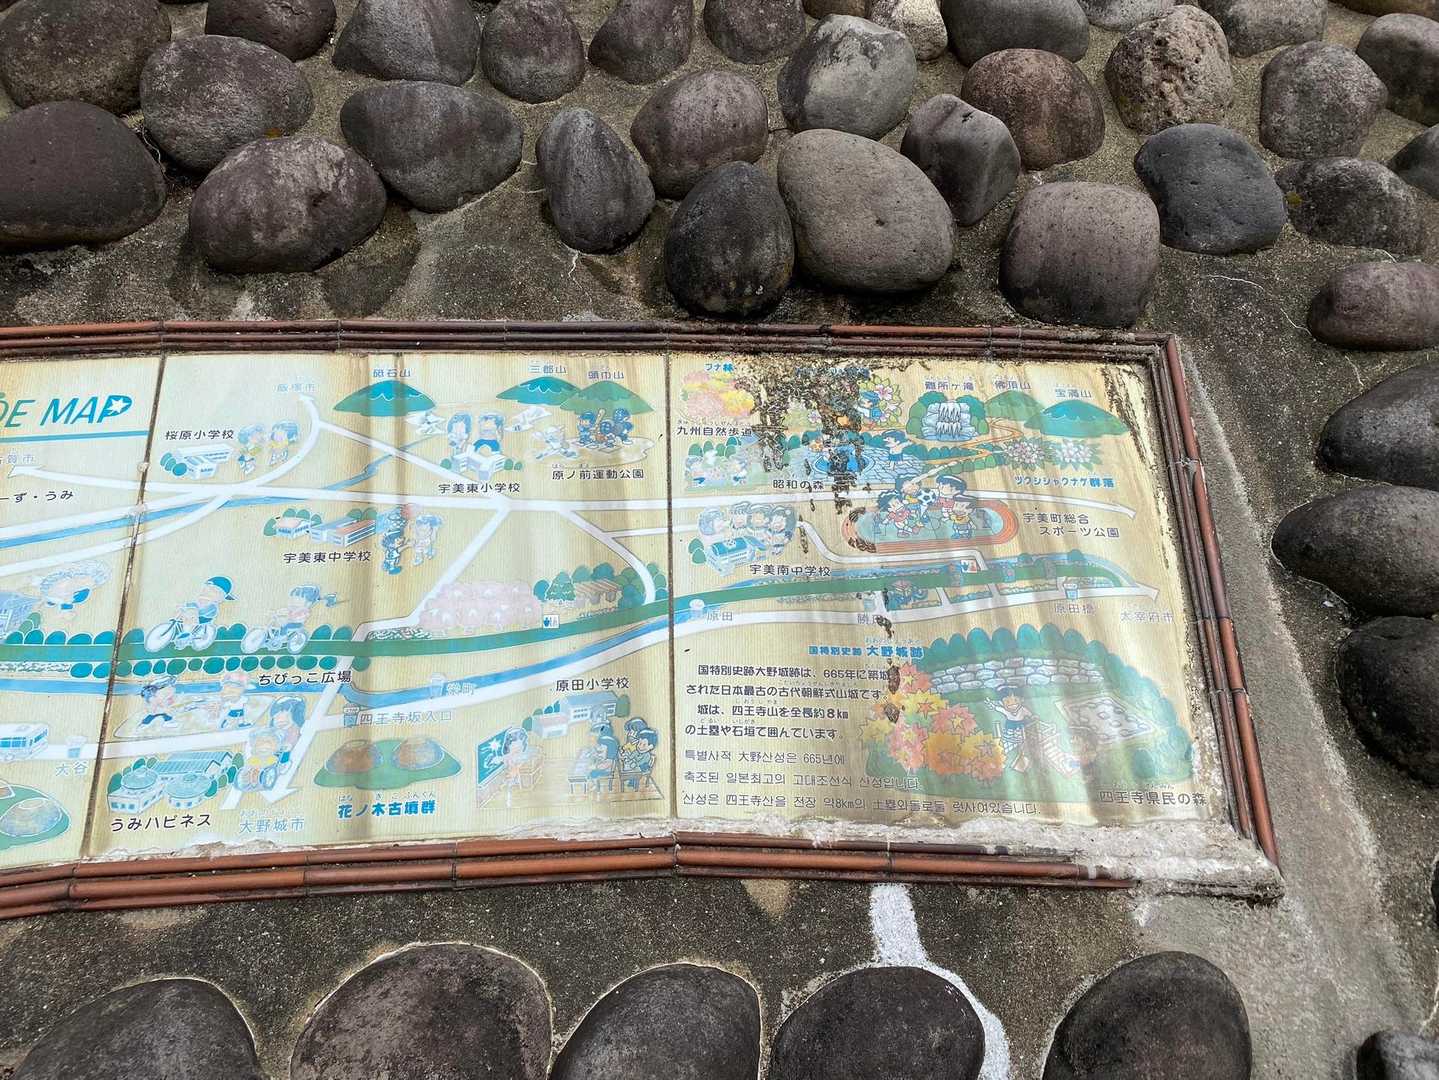 DE MAP
飯塚市
砥石山
三郡山
頭巾山
ブナ林
難所ヶ滝
佛頂山
宝満山
桜原小学校
九州自然歩道
賀市
ーず・うみ
宇美東小学校
原ノ前運動公園
昭和の森
ツクシシャクナゲ群落
宇美町総合
スポーツ公園
宇美東中学校
宇美南中学校
原田
原田橋
太宰府市
ちびっこ広場
栄町
原田小学校
四王寺坂入口
大谷
国特別史跡 大野城跡
国特別史跡大野城跡は、665年に築城
された日本最古の古代朝鮮式山城です。
城は、四王寺山を全長約8km
の土塁や石垣で囲んでいます。
특별사적 大野산성은 665년에
축조된 일본최고의 고대조선식 산성입니다.
산성은 四王寺산을 전장 약8km의 土塁와돌로둘 럿사여있습니다.
うみハピネス
大野城市
花ノ木古墳群
四王寺県民の森